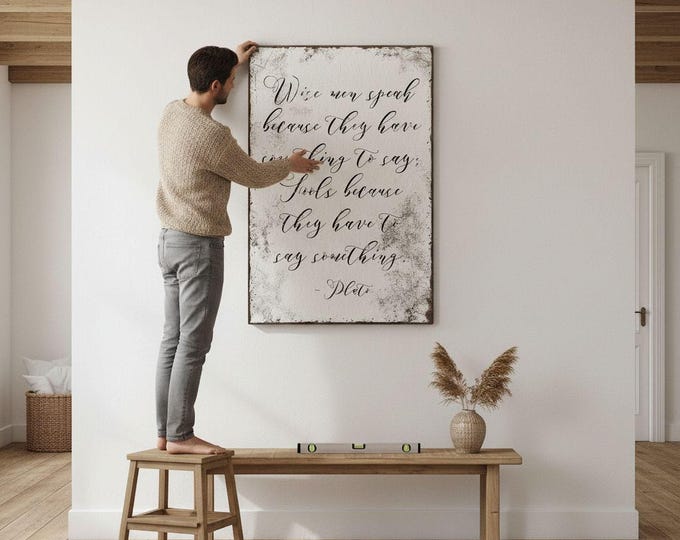 Wise men speak
because they have
something to say;
Fools because
they have to
say something.
- Plato